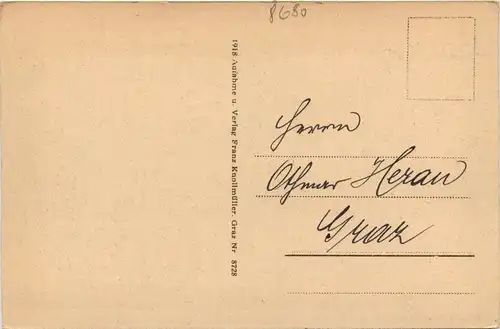 8680
1918 Aufnahme u. Verlag Franz Knollmüller, Graz Nr 8728
Herrn
Othmar Heran
Graz